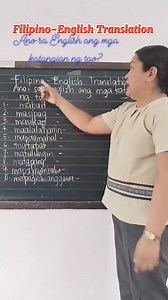 Filipino-English Translation
Ano sa English ang mga
katangian ng tao?
Filipino - English Translation
Ano sa English ang mga kat
ng tao
1. mabait
2. masipag
3. masikap
4. maalalahanin -
5. mapagmahal -
6. matapat -
7. matulungin -
8. matapang -